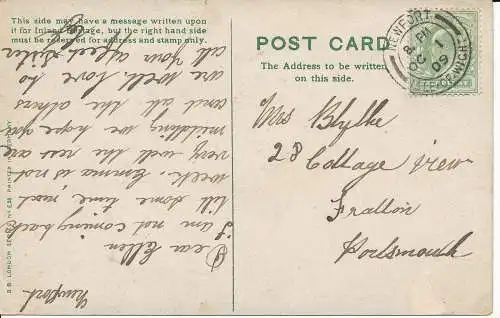 This side may have a message written upon
it for Inland Postage, but the right hand side
must be reserved for address and stamp only.
POST CARD
The Address to be written
on this side.
NEWPORT
8 PM
OC 1
09
Mrs Blylke
28 Cottage View
Fratton
Portsmouth
Newport
Dear Ellen
I am not coming back
till some time next
week. Emma is not
very well the rest are
middling we hope you
and all the others
are well. love to
all your affect sister